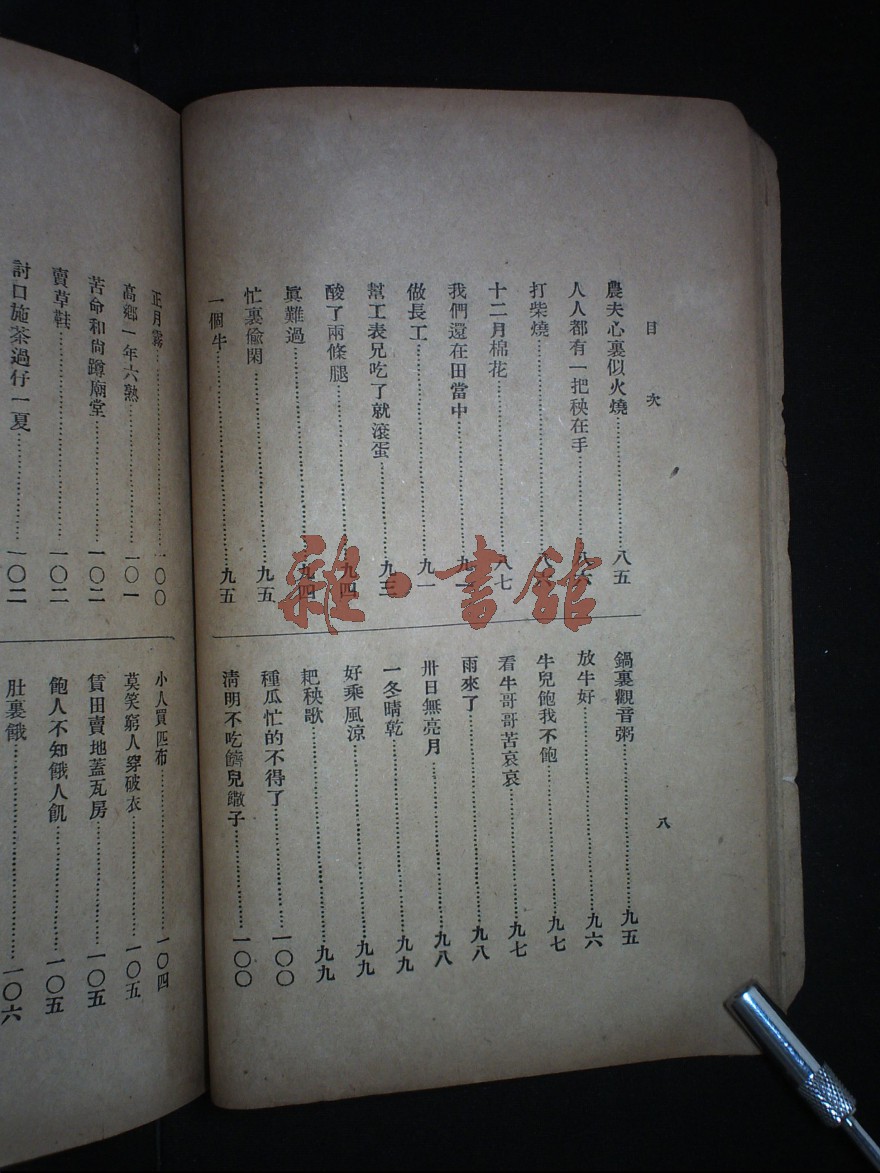 目次
八
農夫心裏似火燒……八五
人人都有一把秧在手……八六
打柴燒……八六
十二月棉花……八七
我們還在田當中……九一
做長工……九一
幫工表兄吃了就滾蛋……九三
酸了兩條腿……九四
眞難過……九四
忙裏偸閑……九五
一個牛……九五
鍋裏觀音粥……九五
放牛好……九六
牛兒飽我不飽……九七
看牛哥哥苦哀哀……九七
雨來了……九八
卅日無亮月……九八
一冬晴乾……九九
好乘風涼……九九
耙秧歌……九九
種瓜忙的不得了……一〇〇
淸明不吃兒子……一〇〇
正月霧……一〇〇
高鄉一年六熟……一〇一
苦命和尙蹲廟堂……一〇二
賣草鞋……一〇二
討口施茶過仔一夏……一〇二
小人買匹布……一〇四
莫笑窮人穿破衣……一〇五
賃田賣地蓋瓦房……一〇五
飽人不知餓人飢……一〇五
肚裏餓……一〇六
雜·書館